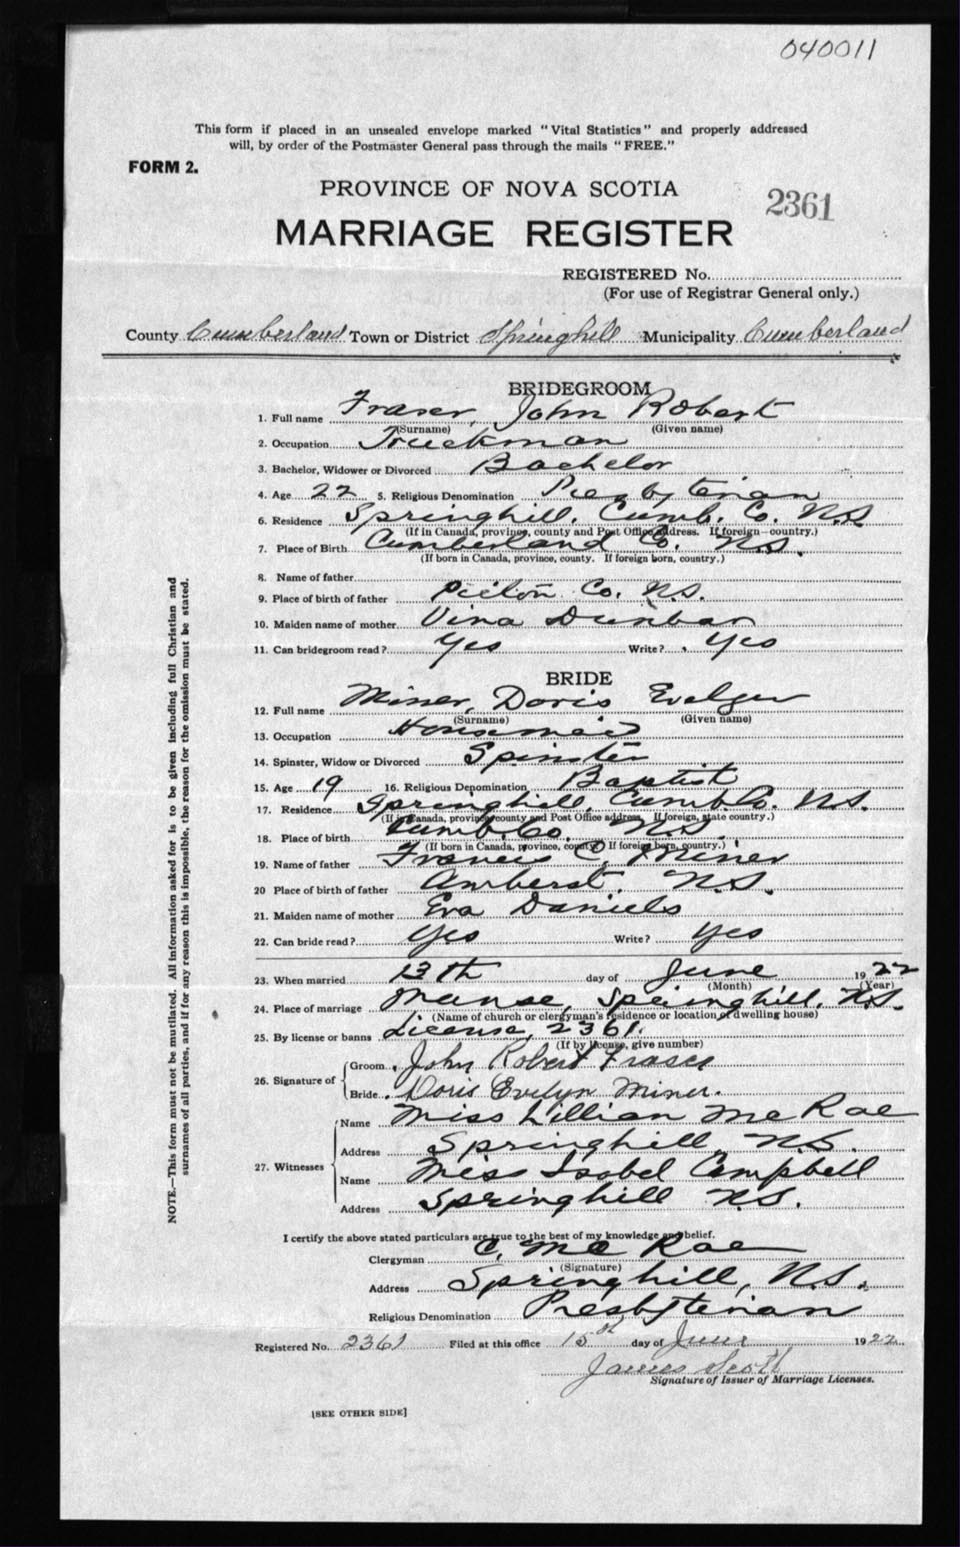 040011
This form if placed in an unsealed envelope marked "Vital Statistics" and properly addressed
will, by order of the Postmaster General pass through the mails "FREE."
FORM 2.
PROVINCE OF NOVA SCOTIA
2361
MARRIAGE REGISTER
REGISTERED No.
(For use of Registrar General only.)
County Cumberland Town or District Springhill Municipality Cumberland
BRIDEGROOM
1. Full name Fraser, John Robert
(Surname) (Given name)
2. Occupation Truckman
3. Bachelor, Widower or Divorced Bachelor
4. Age 22 5. Religious Denomination Presbyterian
6. Residence Springhill, Cumb. Co. N.S.
(If in Canada, province, county and Post Office address. If foreign—country.)
7. Place of Birth Cumberland Co. N.S.
(If born in Canada, province, county. If foreign born, country.)
8. Name of father
9. Place of birth of father Pictou Co. N.S.
10. Maiden name of mother Vina Dunbar
11. Can bridegroom read? Yes Write? Yes
BRIDE
12. Full name Miner, Doris Evelyn
(Surname) (Given name)
13. Occupation Housemaid
14. Spinster, Widow or Divorced Spinster
15. Age 19 16. Religious Denomination Baptist
17. Residence Springhill, Cumb. Co. N.S.
(If in Canada, province county and Post Office address. If foreign, state country.)
18. Place of birth Cumb. Co. N.S.
(If born in Canada, province, county. If foreign born, country.)
19. Name of father Francis C. Miner
20 Place of birth of father Amherst, N.S.
21. Maiden name of mother Eva Daniels
22. Can bride read? Yes Write? Yes
23. When married 13th day of June 1922
(Month) (Year)
24. Place of marriage Manse, Springhill, N.S.
(Name of church or clergyman's residence or location of dwelling house)
25. By license or banns License, 2361.
(If by license, give number)
26. Signature of Groom John Robert Fraser
Bride Doris Evelyn Miner.
27. Witnesses Name Miss Lillian McRae
Address Springhill, N.S.
Name Miss Isobel Campbell
Address Springhill N.S.
I certify the above stated particulars are true to the best of my knowledge and belief.
Clergyman C. McRae
(Signature)
Address Springhill, N.S.
Religious Denomination Presbyterian
Registered No. 2361 Filed at this office 15th day of June 1922
James Scott
Signature of Issuer of Marriage Licenses.
[SEE OTHER SIDE]
NOTE.—This form must not be mutilated. All information asked for is to be given including full Christian and
surnames of all parties, and if for any reason this is impossible, the reason for the omission must be stated.